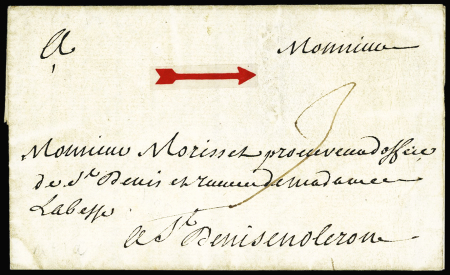 A Monsieur
Monsieur Morisset procureur d'office
de St Denis et de madame
Labesse
a St Denis en oleron